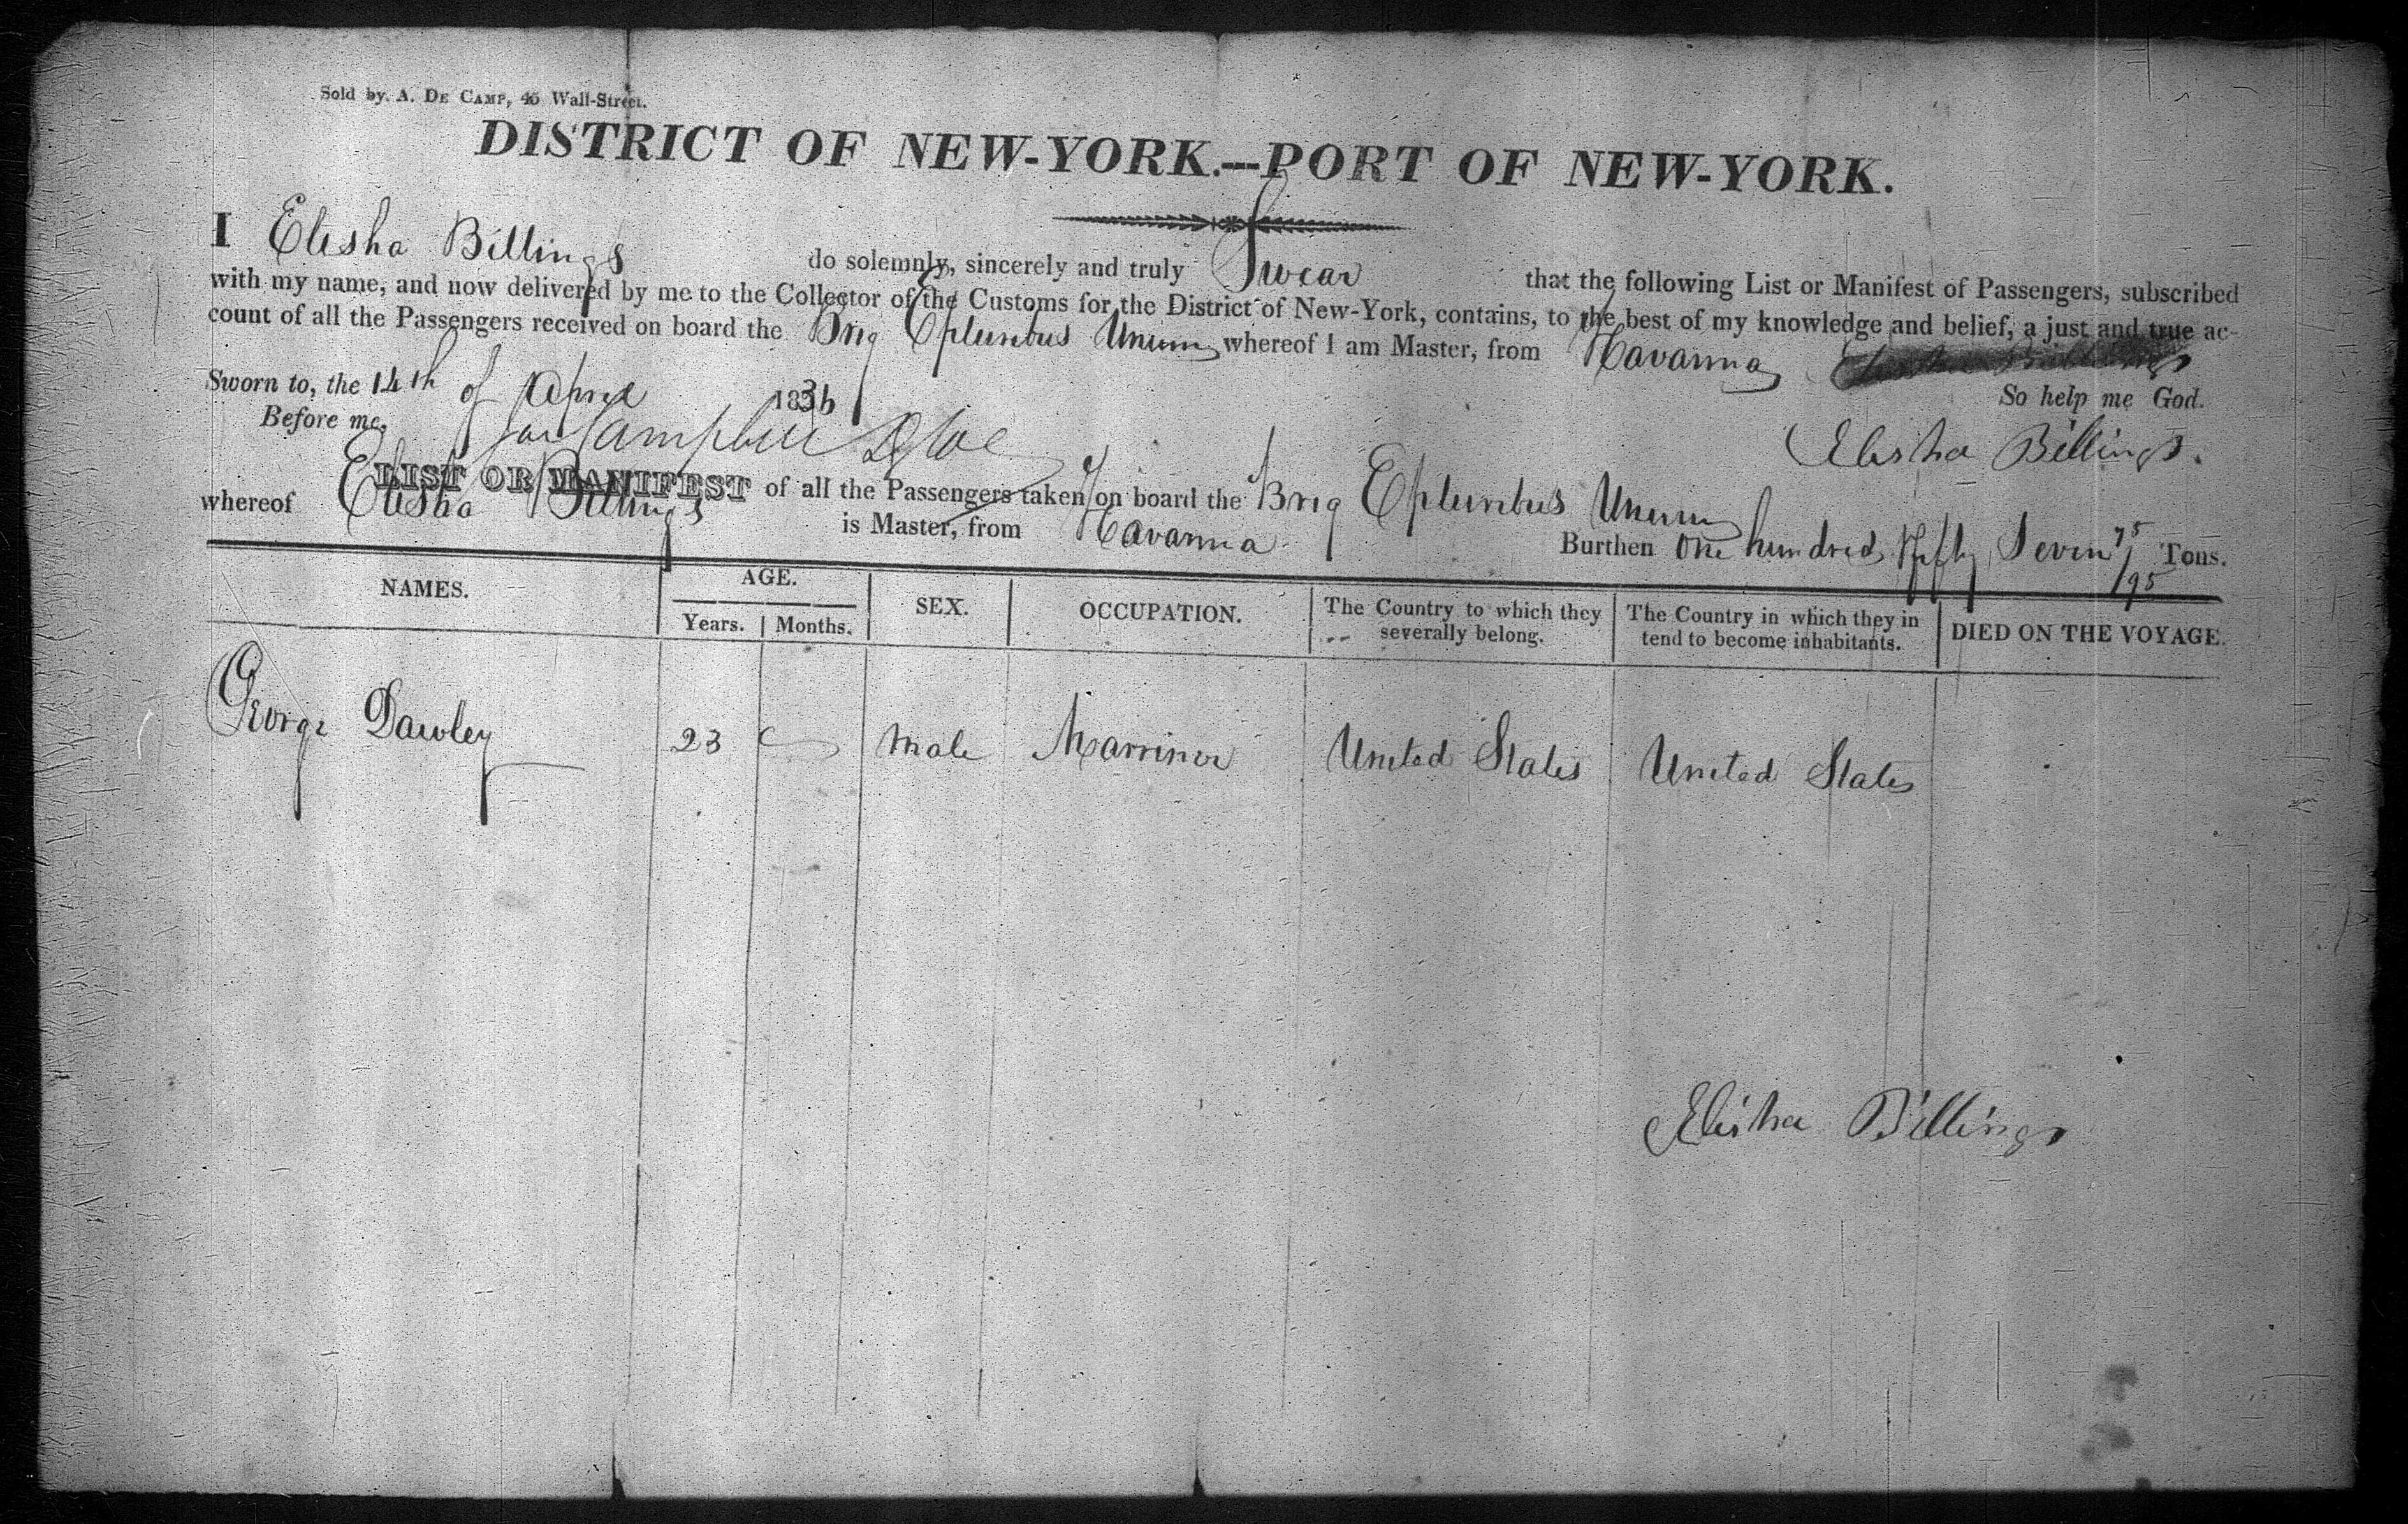 Sold by A. DE CAMP, 45 Wall-Street.
DISTRICT OF NEW-YORK.---PORT OF NEW-YORK.
I Elisha Billings do solemnly, sincerely and truly Swear that the following List or Manifest of Passengers, subscribed
with my name, and now delivered by me to the Collector of the Customs for the District of New-York, contains, to the best of my knowledge and belief, a just and true ac-
count of all the Passengers received on board the Brig Epluribus Unum whereof I am Master, from Havanna
So help me God.
Sworn to, the 14th of April 1836
Before me,
Elisha Billings.
LIST OR MANIFEST of all the Passengers taken on board the Brig Epluribus Unum
whereof Elisha Billings is Master, from Havanna Burthen One hundred fifty Seven 75/95 Tons.
NAMES. AGE. SEX. OCCUPATION. The Country to which they severally belong. The Country in which they in tend to become inhabitants. DIED ON THE VOYAGE.
Years. Months.
George Dawley 23 Male Marriner United States United States
Elisha Billings